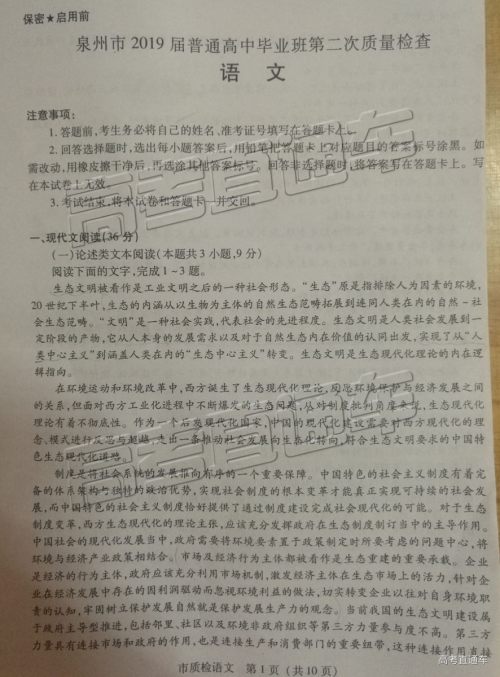 保密★启用前
泉州市2019届普通高中毕业班第二次质量检查
语 文
注意事项:
1.答题前,考生务必将自己的姓名、准考证号填写在答题卡上。
2.回答选择题时,选出每小题答案后,用铅笔把答题卡上对应题目的答案标号涂黑。如
需改动,用橡皮擦干净后,再选涂其他答案标号。回答非选择题时,将答案写在答题卡上。写
在本试卷上无效。
3.考试结束,将本试卷和答题卡一并交回。
一、现代文阅读(36分)
(一)论述类文本阅读(本题共3小题,9分)
阅读下面的文字,完成1~3题。
生态文明被看作是工业文明之后的一种社会形态。“生态”原是指排除人为因素的环境,
20世纪下半叶,生态的内涵从以生物为主体的自然生态范畴拓展到连同人类在内的自然-社
会生态范畴。“文明”是一种社会实践,代表社会的先进程度。生态文明是人类社会发展到一
定阶段的产物,它从人本身的发展需求以及对于自然生态内在价值的认同出发,实现了从“人
类中心主义”到涵盖人类在内的“生态中心主义”转变。生态文明是生态现代化理论的内在逻
辑指向。
在环境运动和环境改革中,西方诞生了生态现代化理论,囿于环境保护与经济发展之间
的关系,但面对西方工业化进程中不断爆发的生态问题,从对制度批判角度来说,生态现代化
理论有着不彻底性。作为一个后发现代化国家,中国的现代化建设需要对西方现代化的理
念、模式进行反思与超越,走出一条推动社会发展向生态化转向,符合生态文明要求的中国特
色生态现代化道路。
制度是将社会系统的发展推向有序的一个重要保障。中国特色的社会主义制度有着完
备的体系架构与独特的政治优势,实现社会制度的根本变革才能真正实现可持续的社会发
展,而中国特色的社会主义制度恰好提供了通过制度建设完成社会现代化的可能。对于生态
制度变革,西方生态现代化的理论主张,应该充分发挥政府在生态制度制订当中的主导作用。
中国社会的现代化发展当中,政府需要将环境要素置于政策制定时所要考虑的问题中心,将
环境与经济产业政策相结合。市场及经济行为主体都被看作是生态重建的重要承载。企业
是经济的行为主体,政府应该充分利用市场机制,激发经济主体在生态市场上的活力,针对企
业在经济发展中存在的因利润驱动而忽视环境利益的做法,切实转变企业以往对自身环境职
责的认知,牢固树立保护发展自然就是保护发展生产力的观念。当前我国的生态文明建设属
于政府主导型推进,包括邻里、社区以及环境非政府组织等第三方力量参与度不高。第三方
力量具有连接市场和政府的作用,也是连接生产和消费部门的重要纽带,这种连接作用直接
市质检语文 第1页(共10页)
高考直通车
高考直通车
高考直通车
高考直通车